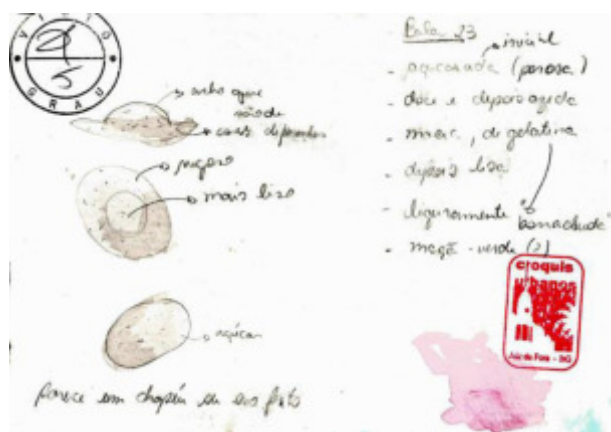 VICIO
GRAU
acho que
são de
cores diferentes
rugoso
mais liso
açúcar
parece um chapéu ou ovo frito
Bala 23
inicial
- açucarada (porosa)
- doce e depois azeda
- macia, de gelatina
- depois lisa
- ligeiramente "borrachuda"
- maçã-verde (?)
croquis
urbanos
Juiz de Fora - MG